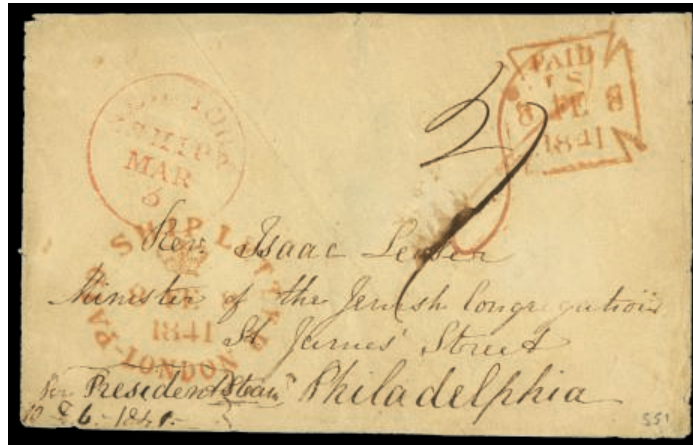 PAID
8 FE 8
1841
NEW YORK
SHIP
MAR
5
PAID SHIP LETTER
8 FE
1841
LONDON
Rev. Isaac Leeser
Minister of the Jewish Congregation
St James' Street
Philadelphia
per President Steam
10 Feb. 1841.
551